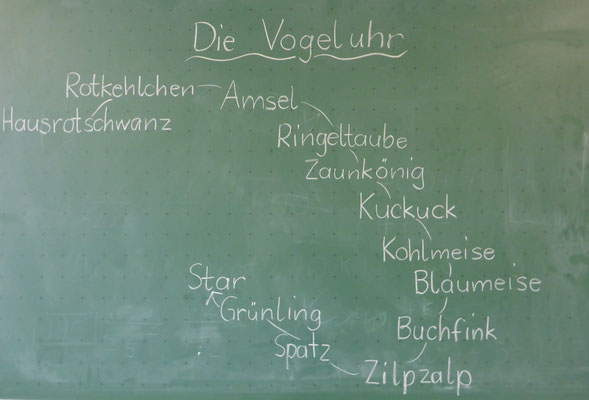 Die Vogeluhr
Hausrotschwanz
Rotkehlchen
Amsel
Ringeltaube
Zaunkönig
Kuckuck
Kohlmeise
Blaumeise
Buchfink
Zilpzalp
Spatz
Grünling
Star